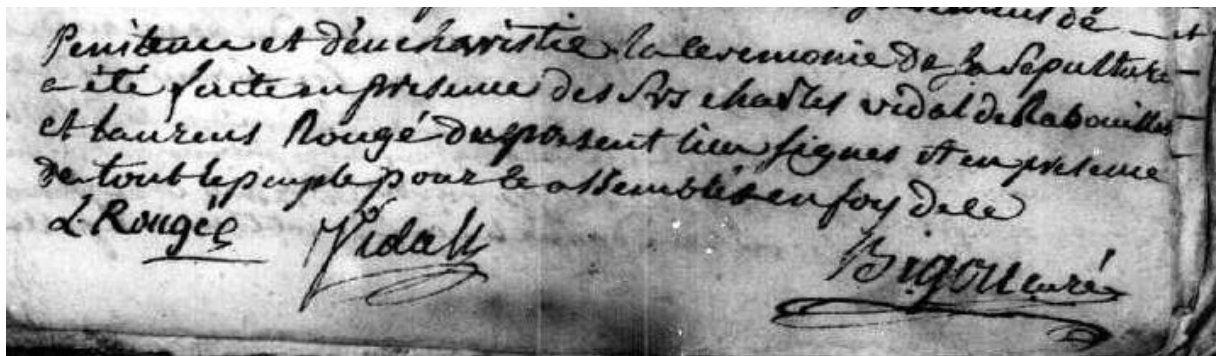 de et
Penitence et d'eucharistie la ceremonie de la Sepulture
a été faite en presence des Srs charles vidal de Rabouillet
et Laurens Rougé du present lieu signes et en presence
de tout le peuple pour ce assemblés en foy de ce
L. Rougé Vidall
Bigou curé